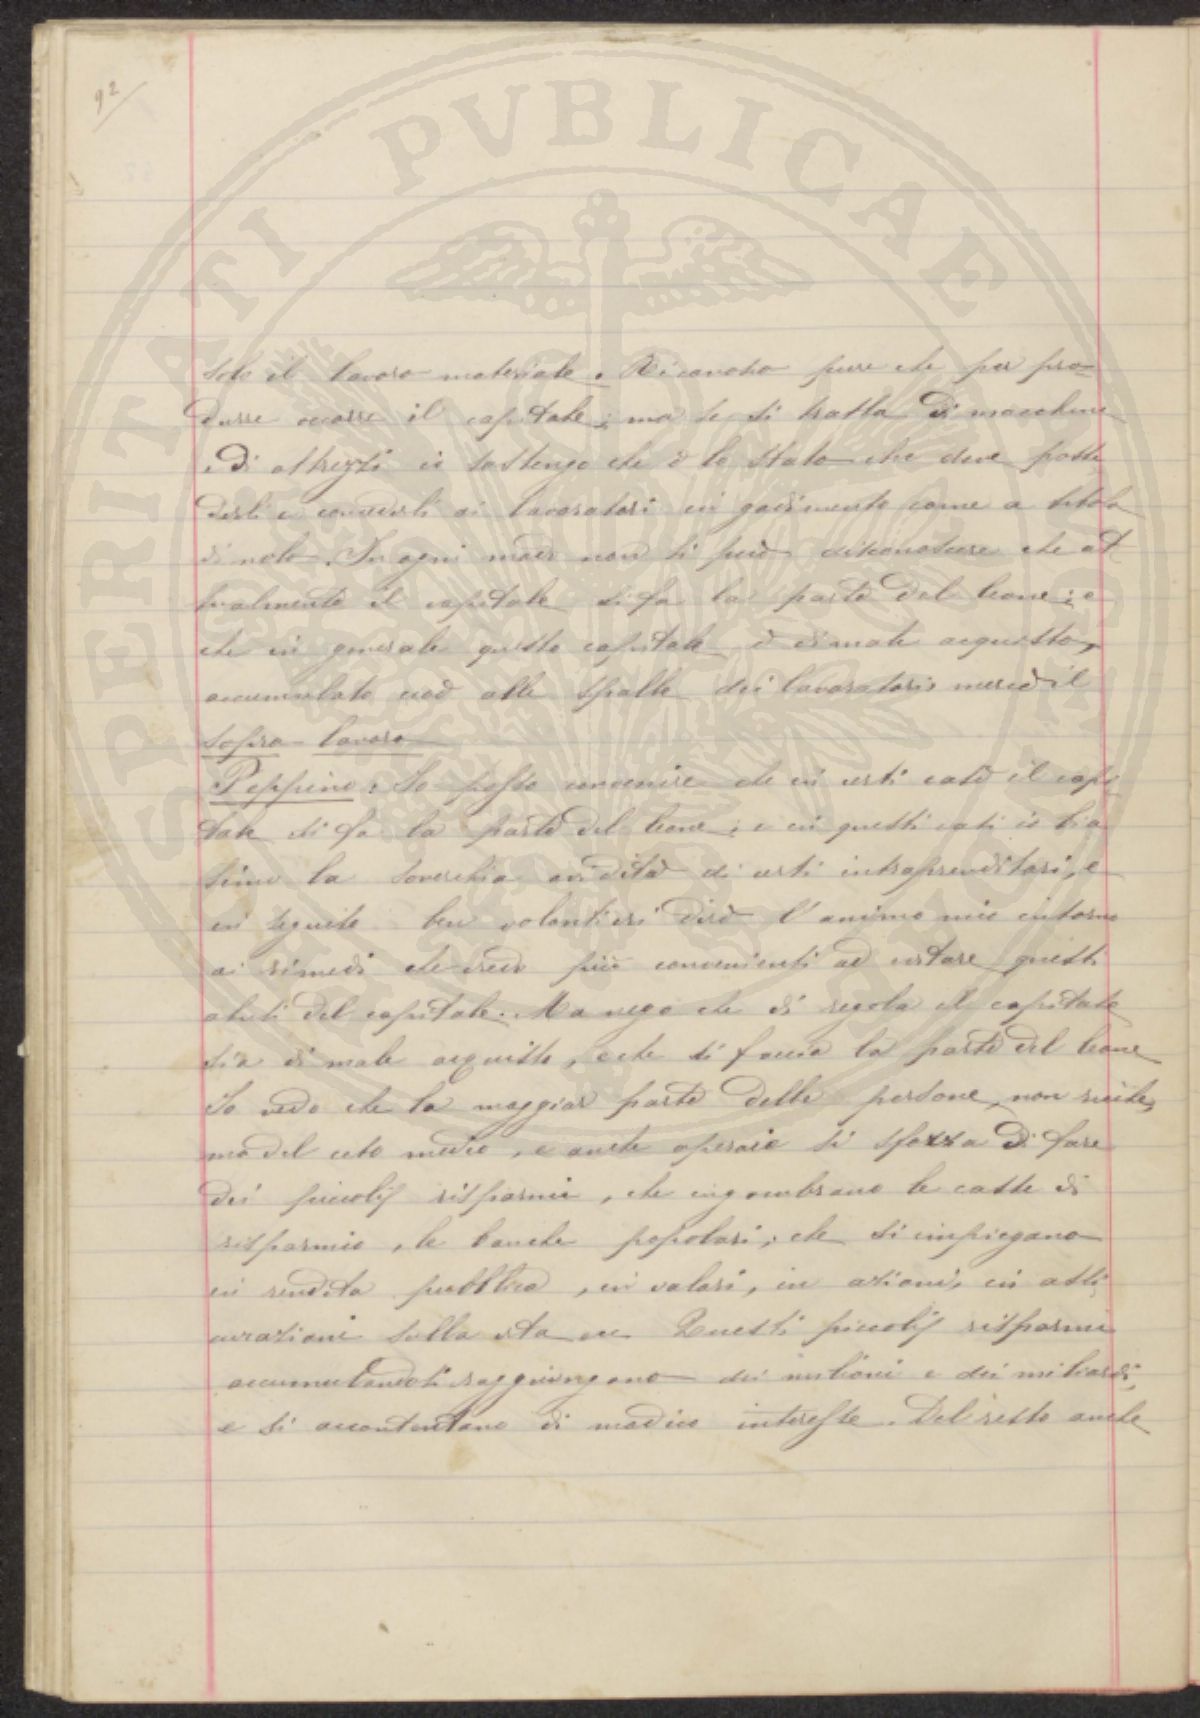 92
PROSPERITATI PVBLICAE
solo il lavoro materiale. Riconosco pure che per pro=
durre occorre il capitale; ma se si tratta di macchine
e di attrezzi io sostengo che è lo Stato che deve posse
derli e concederli ai lavoratori in godimento come a titolo
di nolo. In ogni modo non si può disconoscere che at
tualmente il capitale si fa la parte del leone; e
che in generale questo capitale è di male acquisto,
accumulato cioè alle spalle dei lavoratori mercè il
sopra-lavoro
Peppino: Io posso convenire che in certi casi il capi
tale si fa la parte del leone; e in questi casi io bia
simo la soverchia avidità di certi intraprenditori, e
in seguito ben volontieri dirò l'animo mio intorno
ai rimedi che credo più convenienti ad evitare questi
abusi del capitale. Ma nego che di regola il capitale
sia di male acquisto, e che si faccia la parte del leone
Io vedo che la maggior parte delle persone, non ricche,
ma del ceto medio, e anche operaio si sforza di fare
dei piccoli risparmi, che ingombrano le casse di
risparmio, le banche popolari; che si impiegano
in rendita pubblica, in valori, in azioni, in assi
curazioni sulla vita ecc. Questi piccoli risparmi
accumulandosi raggiungono dei milioni e dei miliardi,
e si accontentano di modico interesse. Del resto anche